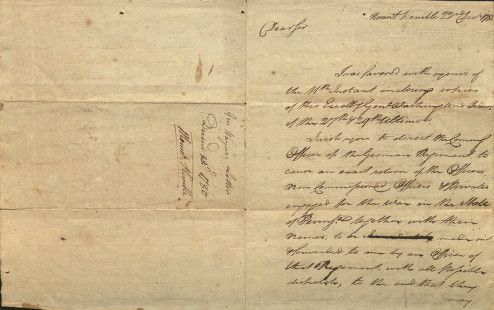 Gen Waynes Letter
Decem 22d 1780
Mount Kemble
Mount Kemble 22nd Decr 1780
Dear Sir
I was favored with yours of
the 11th Instant inclosing copies
of His Excelly Genl Washington's
of the 27th & 29th Ultimo
I wish you to direct the Commg
Officer of the German Regiment to
cause an exact return of the Officers
Non Commissiond Officers & Privates
engaged for the War in the State
of Pennsa together with their
names, to be made out
& forwarded to me by an Officer of
that Regiment, with all possible
dispatch, to the end that they
may